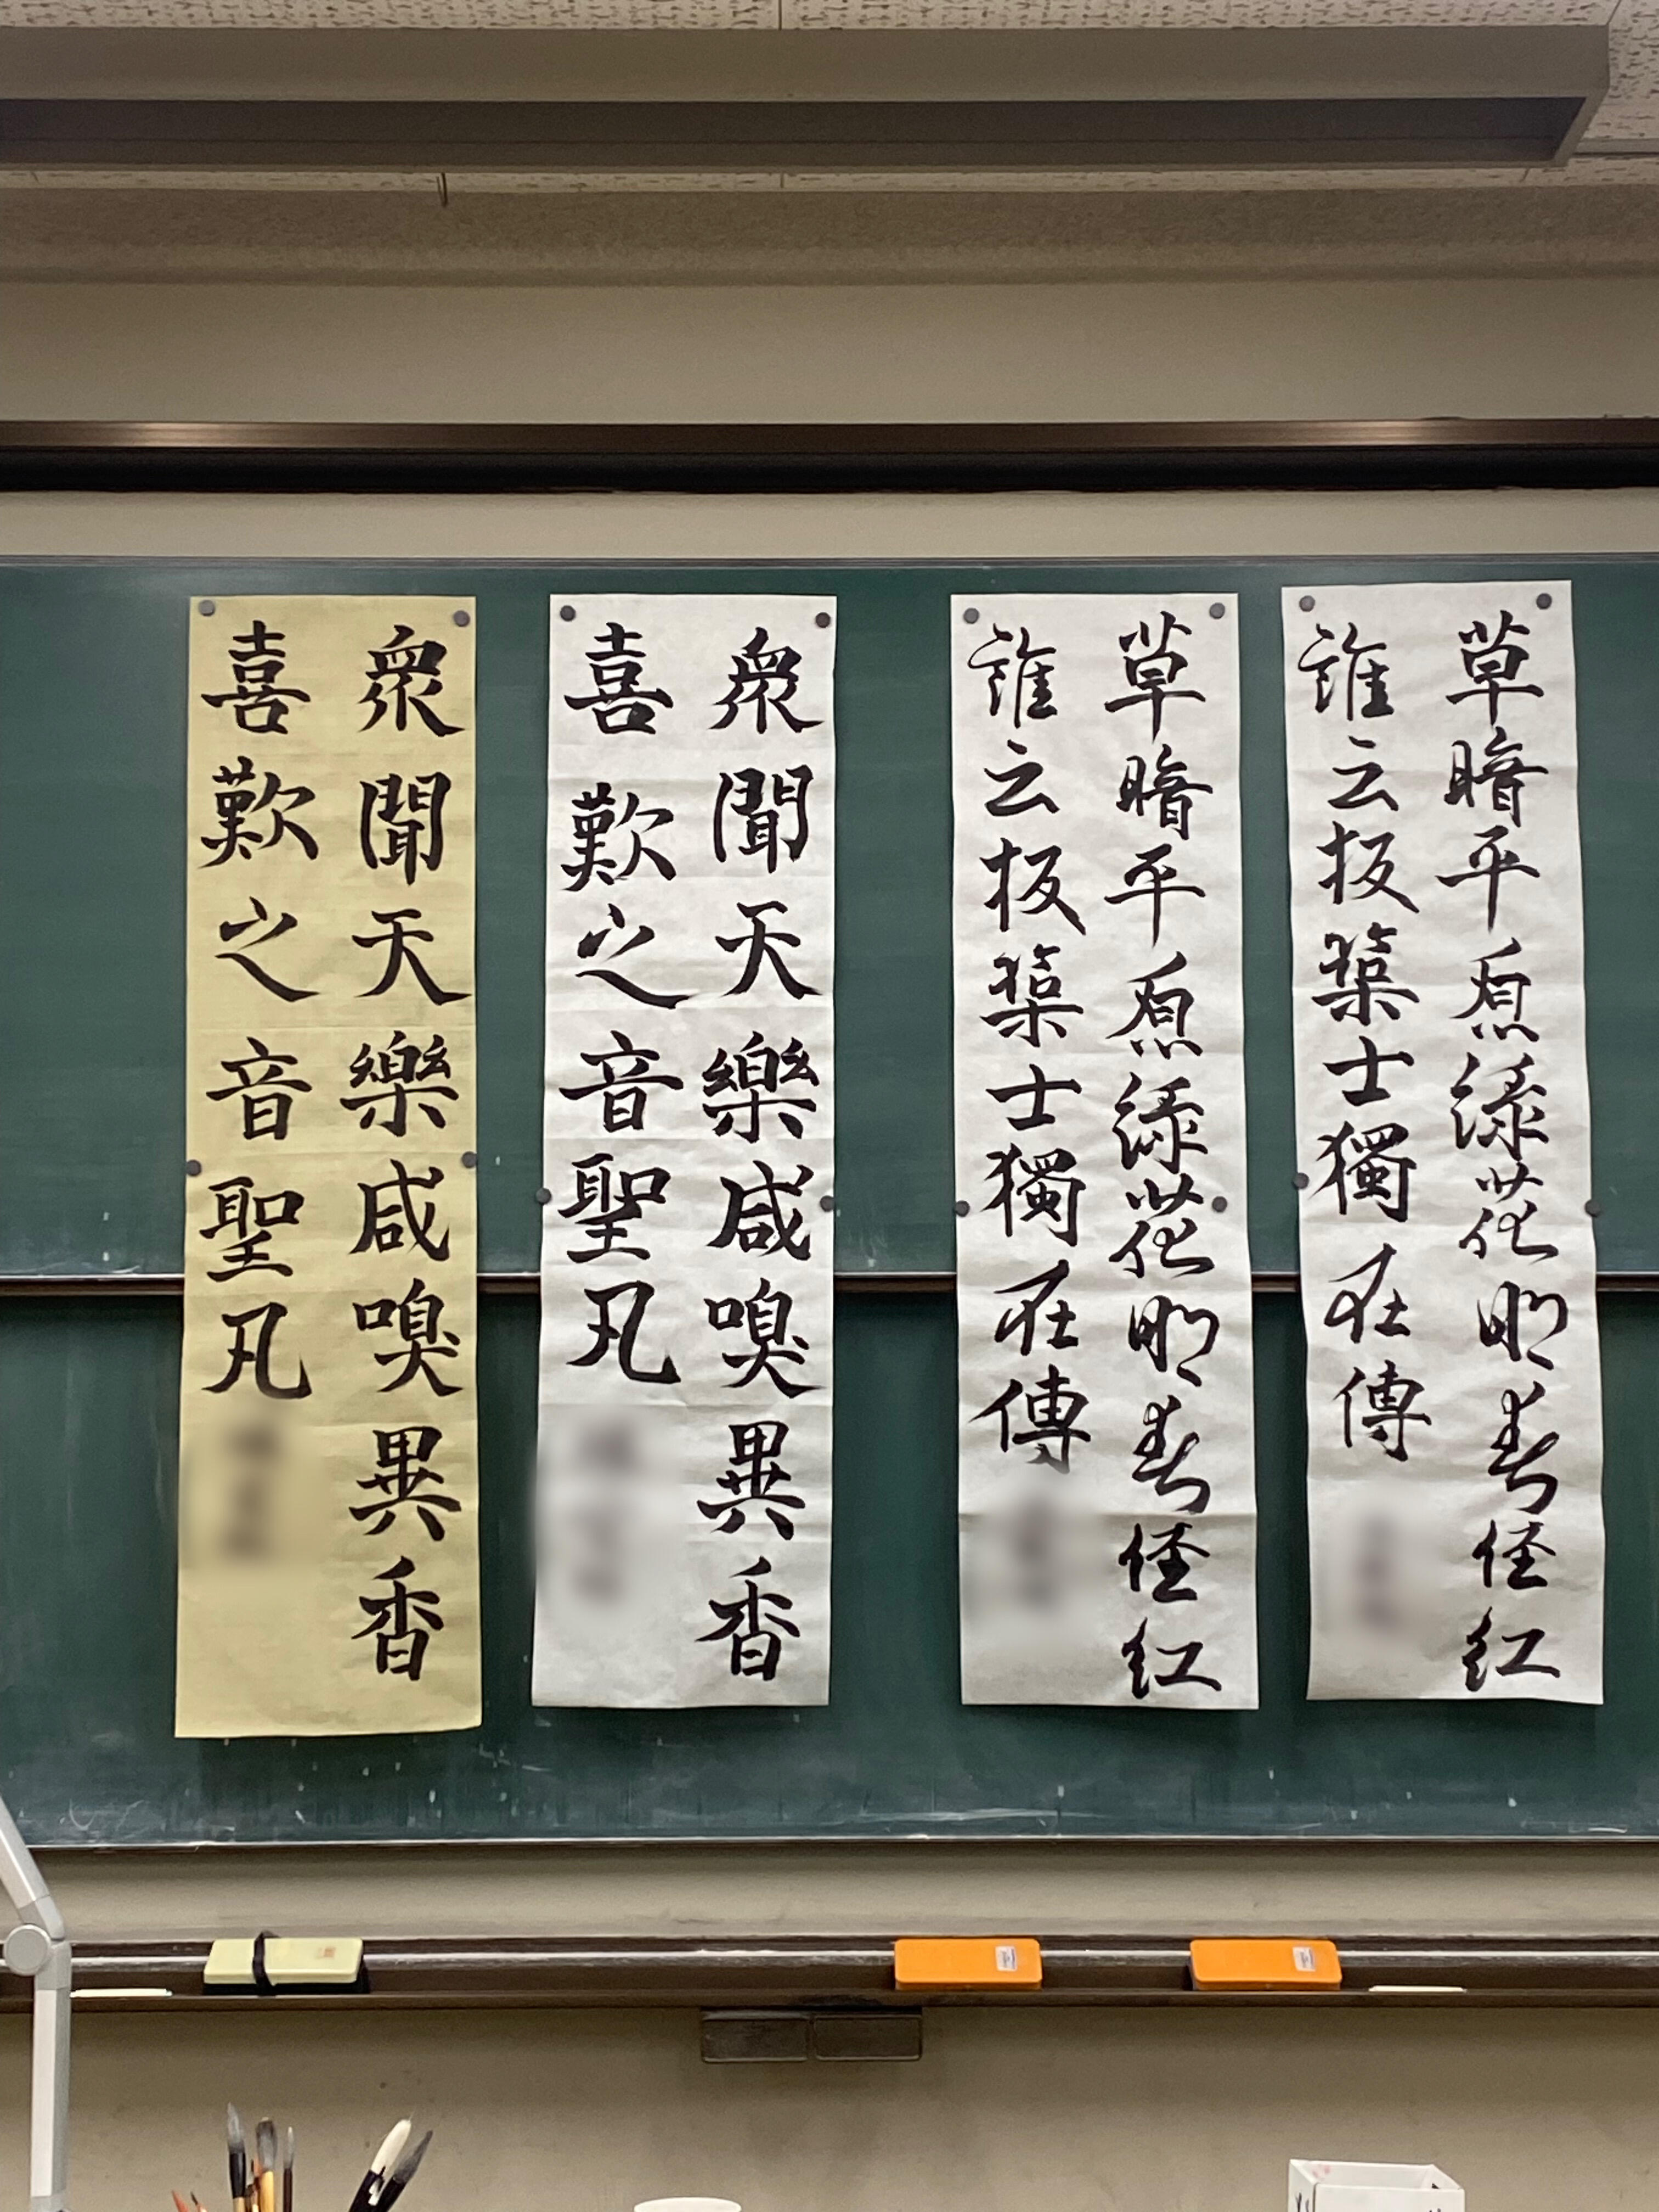 草暗平原緑花明春径紅
誰云板築士獨在傳
草暗平原緑花明春径紅
誰云板築士獨在傳
衆聞天樂咸嗅異香
喜歎之音聖凡
衆聞天樂咸嗅異香
喜歎之音聖凡